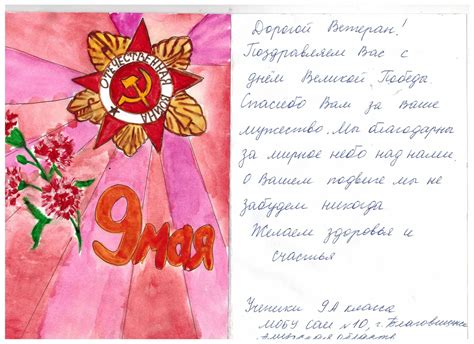 ОТЕЧЕСТВЕННАЯ ВОЙНА
9 мая
Дорогой Ветеран!
Поздравляем Вас с
днём Великой Победы.
Спасибо Вам за Ваше
мужество. Мы благодарны
за мирное небо над нами.
О Вашем подвиге мы не
забудем никогда
Желаем здоровья и
счастья
Ученики 9А класса
МОБУ СОШ №10, г. Благовещенск
Амурская область